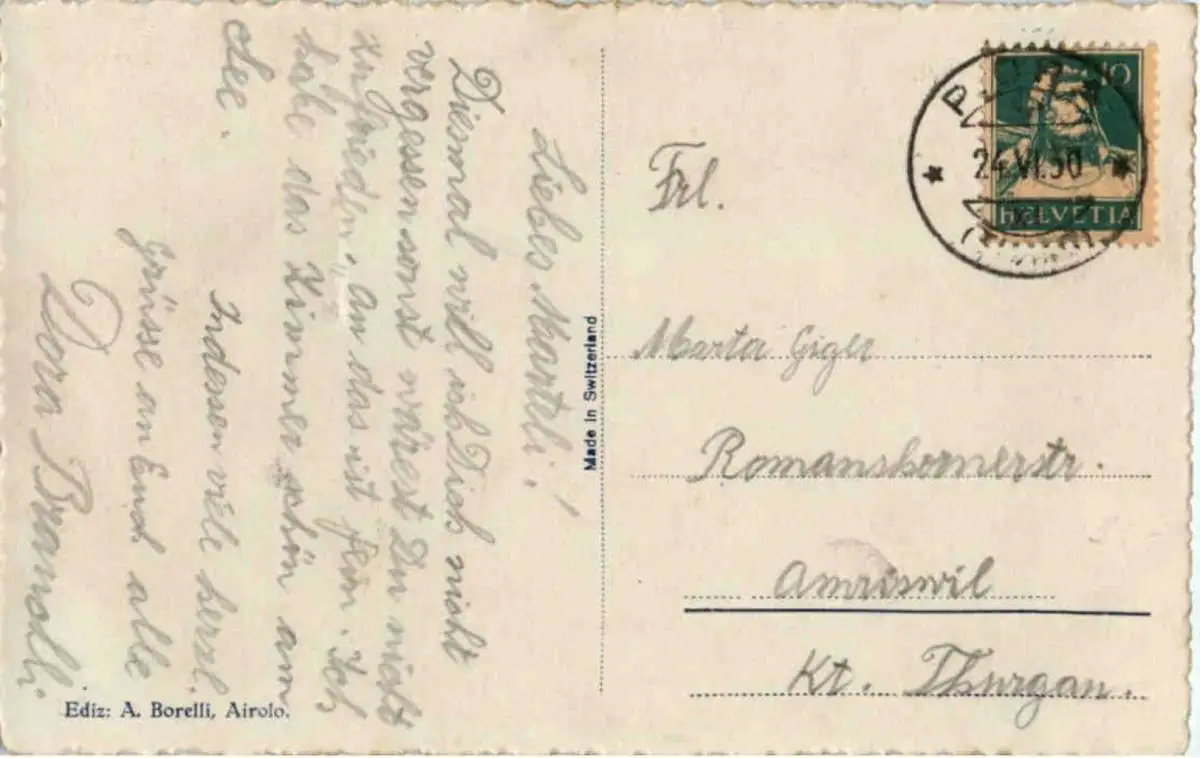 Liebes Marteli!
Diesmal will ich Dich nicht
vergessen sonst wärest Du nicht
zufrieden. an das ist fein. Ich
habe das Zimmer schön am
See.
Indessen viele herzl.
Grüsse an Euch alle
Dora
Ediz: A. Borelli, Airolo.
Made in Switzerland
10
24.VI.30
HELVETIA
Frl.
Marta Giger
Romanshornerstr.
Amriswil
Kt. Thurgau.